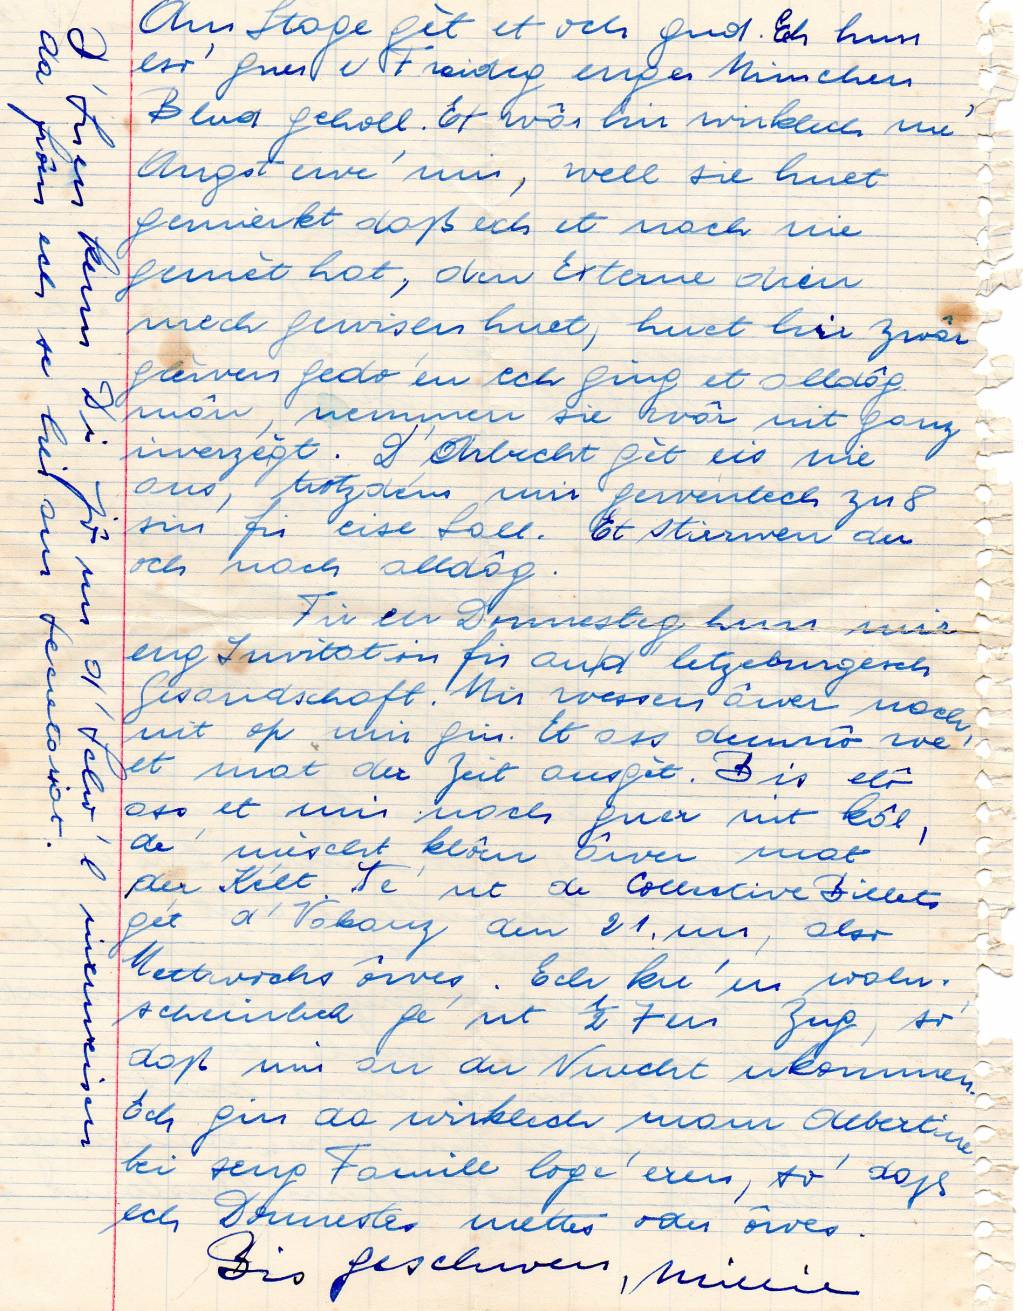 Am Stage gêt et och gud. Ech hun
eso' guer e Freideg enger Minchen
Blud geholl. Et wôr hir wirklech me'
Angst ewe' mir, well sie huet
gemierkt daß ech et nach nie
gemêt hat, den Externe dien
mech gewisen huet, huet hir zwôr
gléiwen gedo' en ech ging et alldôg
môn, nemmen sie wôr nit ganz
iwerzêgt. D'Arbecht gêt eis nie
aus, trotzdem mir gewéinlech zu 8
sin fir eise Sall. Et stierwen der
och nach alldôg.
Fir en Donnesteg hun mir
eng Invitation fir an d' letzeburgesch
Gesandschaft. Mir wessen âwer nach
nit op mir gin. Et ass demnô we'
et mat der Zeit ausgêt. Bis elô
ass et mir nach guer nit kâl,
de' mescht klôen âwer mat
der Kelt. Fe' ut de Collective Billets
gêt d'Vakanz den 21. un, also
Mettwochs ôwes. Ech kre' en wahr-
scheinlech de' ut 1/2 7 en Zug, so'
daß mir an der Nuecht ukommen.
Ech gin da wirklech mam Albertine
bei seng Famill loge'eren, so' daß
ech Donnestes mettes oder ôwes.
Bis geschwen,
da frôen ech se bei am Secretariat.